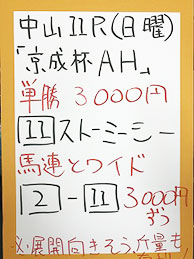 中山11R(日曜)
「京成杯AH」
単勝3000円
11ストーミーシー
馬連とワイド
2-11 3000円
ずつ
※展開向きそう斤量も